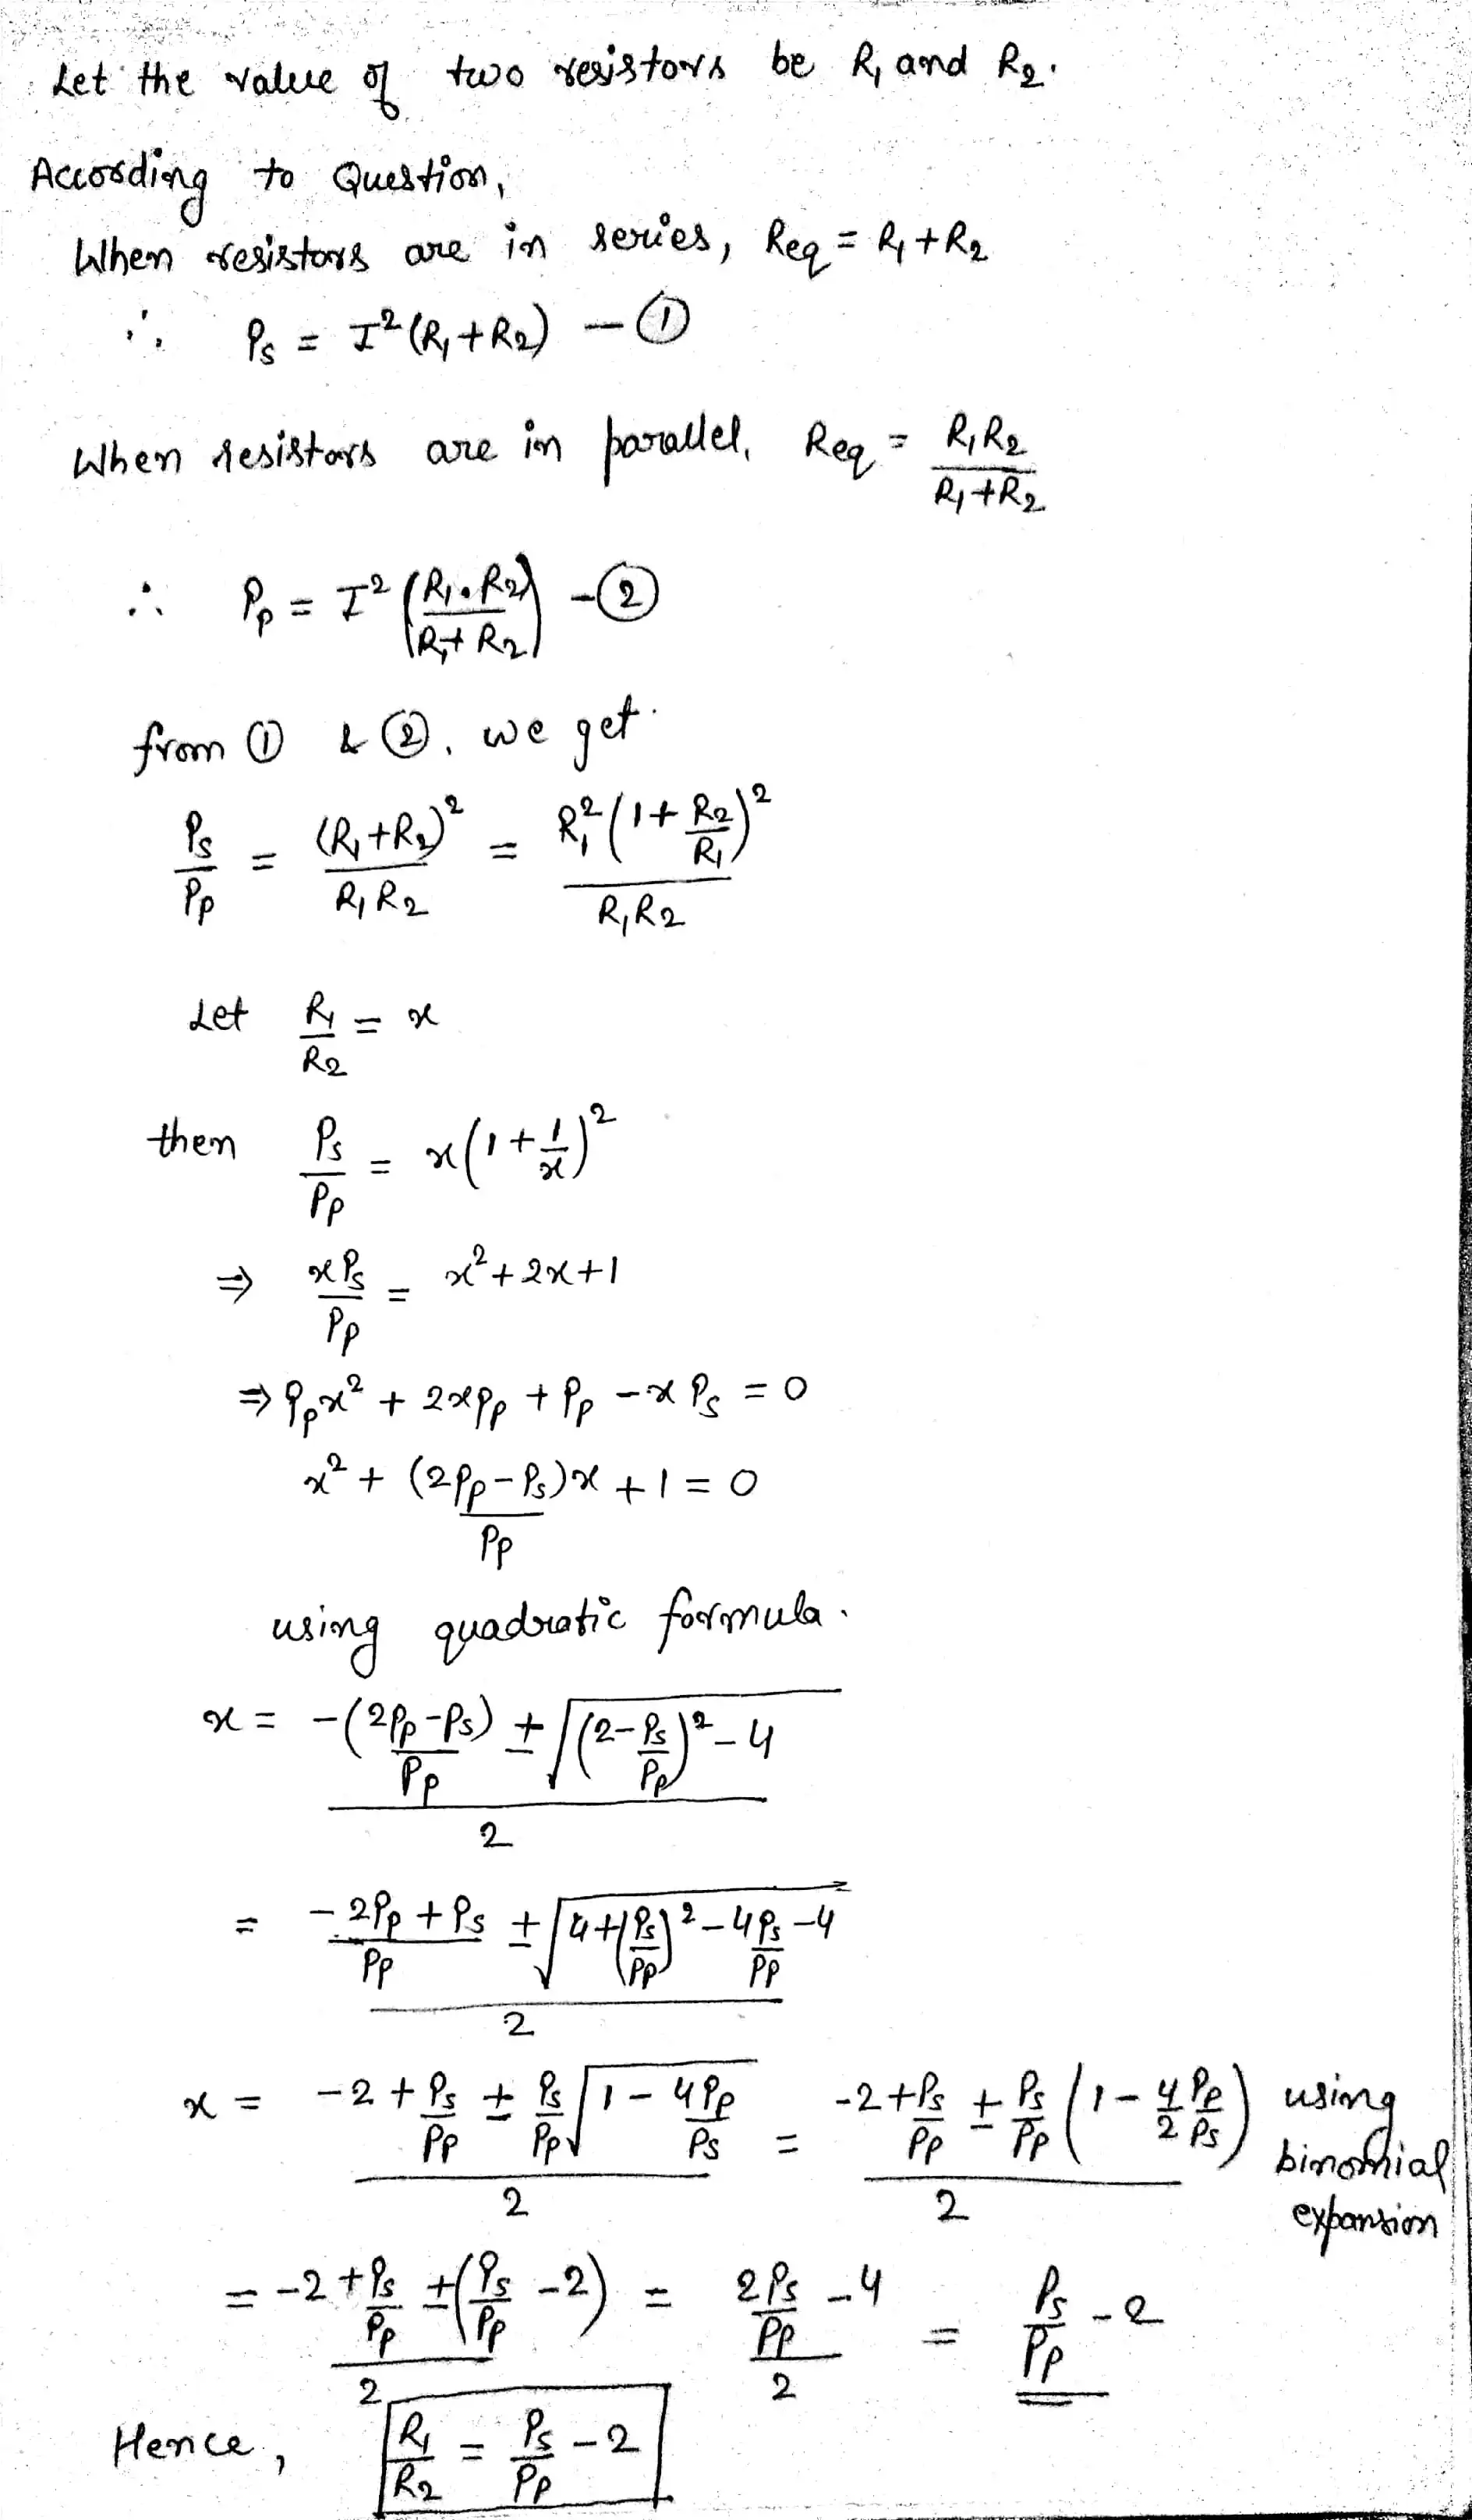 Let the value of two resistors be R₁ and R₂.
According to Question,
When resistors are in series, Req = R₁ + R₂
∴ Ps = I² (R₁ + R₂) — ①
When resistors are in parallel, Req = R₁R₂ / R₁+R₂
∴ Pp = I² (R₁.R₂ / R₁+R₂) — ②
from ① & ②, we get.
Ps/Pp = (R₁+R₂)² / R₁R₂ = R₁² (1 + R₂/R₁)² / R₁R₂
Let R₁/R₂ = x
then Ps/Pp = x(1 + 1/x)²
⇒ xPs/Pp = x² + 2x + 1
⇒ Ppx² + 2xPp + Pp − xPs = 0
x² + (2Pp − Ps)x / Pp + 1 = 0
using quadratic formula.
x = [−(2Pp − Ps)/Pp ± √((2 − Ps/Pp)² − 4)] / 2
= [(−2Pp + Ps)/Pp ± √(4 + (Ps/Pp)² − 4Ps/Pp − 4)] / 2
x = [−2 + Ps/Pp ± Ps/Pp √(1 − 4Pp/Ps)] / 2 = [−2 + Ps/Pp ± Ps/Pp (1 − 4/2 Pp/Ps)] / 2 using binomial expansion
= [−2 + Ps/Pp ± (Ps/Pp − 2)] / 2 = [2Ps/Pp − 4] / 2 = Ps/Pp − 2
Hence, R₁/R₂ = Ps/Pp − 2